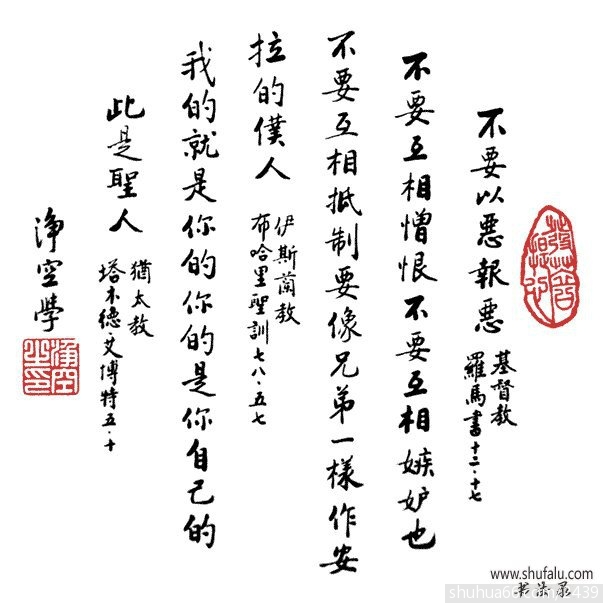 不要以惡報惡
基督教
羅馬書十二·十七
不要互相憎恨不要互相嫉妒也
不要互相抵制要像兄弟一樣作安
拉的僕人
伊斯蘭教
布哈里聖訓七八·五七
我的就是你的你的是你自己的
此是聖人
猶太教
塔木德·艾博特五·十
淨空學
淨空之印
www.shufalu.com
书法录